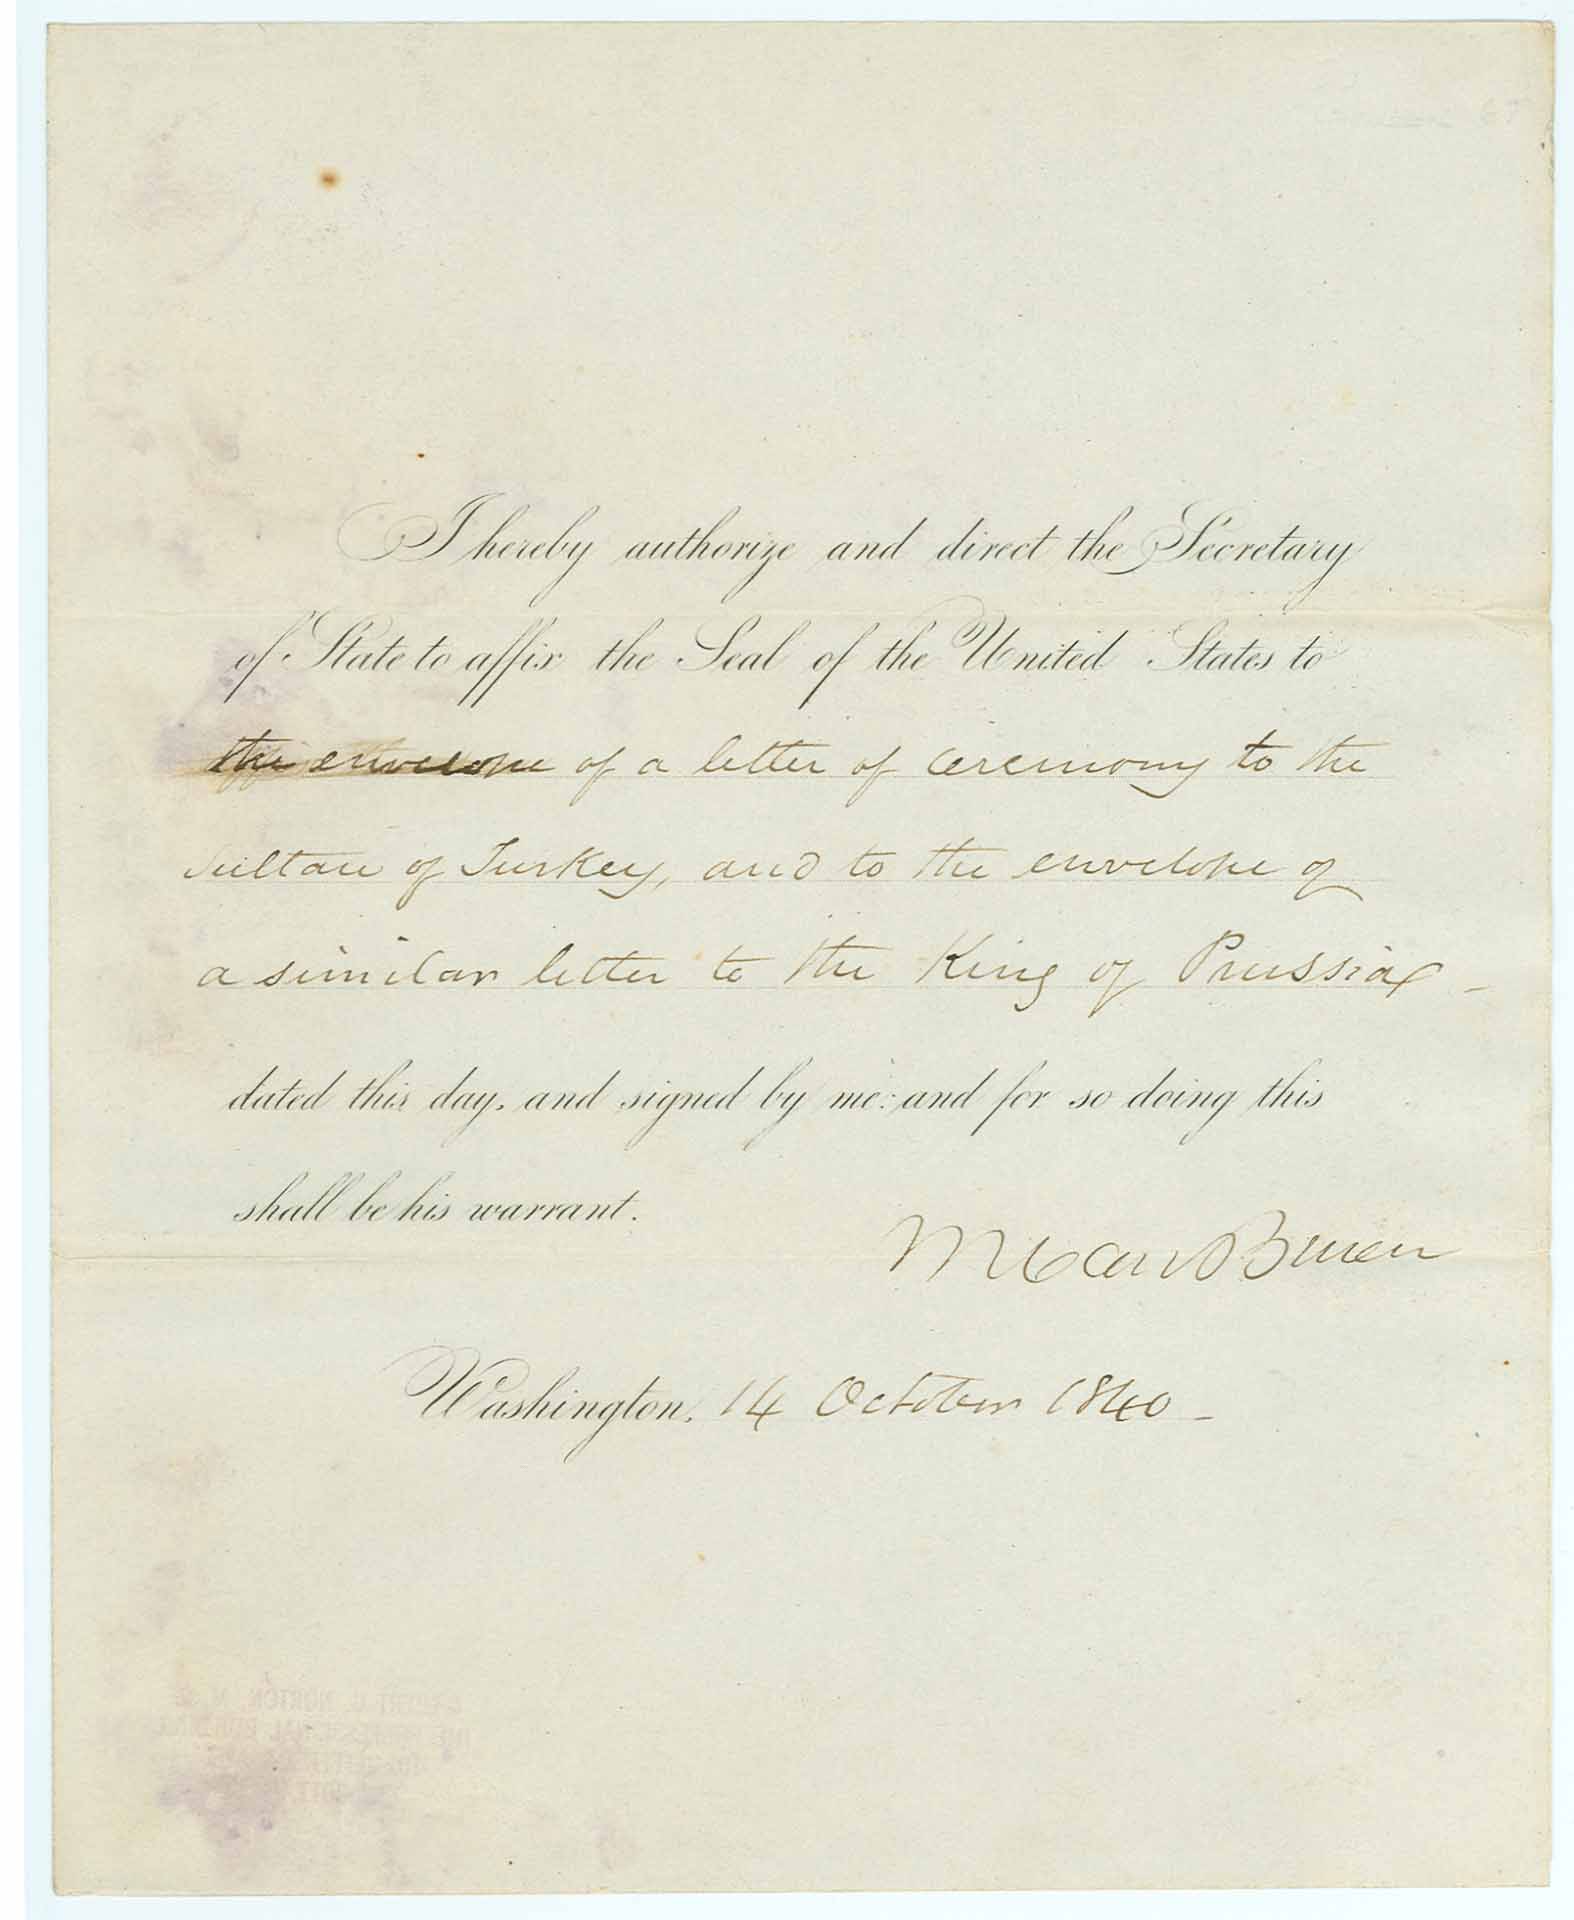 I hereby authorize and direct the Secretary
of State to affix the Seal of the United States to
the envelope of a letter of ceremony to the
Sultan of Turkey, and to the envelope of
a similar letter to the King of Prussia –
dated this day, and signed by me: and for so doing this
shall be his warrant.
M Van Buren
Washington, 14 October 1840 –
NORTON, M.